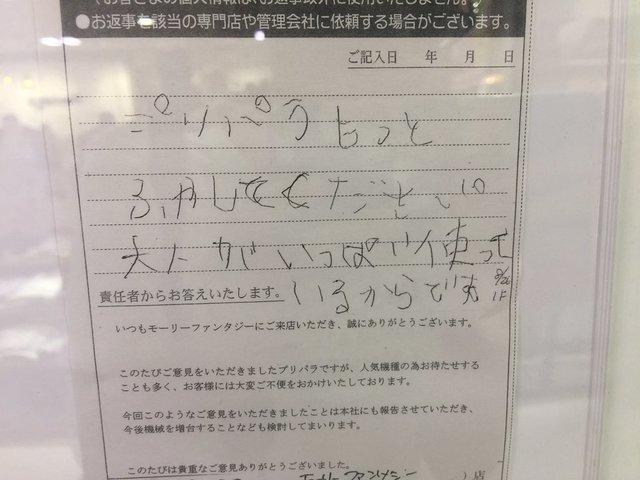 ●お返事を該当の専門店や管理会社に依頼する場合がございます。
ご記入日　年　月　日
プリパラもっと
ふやしてください
大人がいっぱい使って
いるからです
9/26
1F
責任者からお答えいたします。
いつもモーリーファンタジーにご来店いただき、誠にありがとうございます。
このたびご意見をいただきましたプリパラですが、人気機種の為お待たせする
ことも多く、お客様には大変ご不便をおかけいたしております。
今回このようなご意見をいただきましたことは本社にも報告させていただき、
今後機械を増台することなども検討してまいります。
このたびは貴重なご意見ありがとうございました。
ファンタジー
店